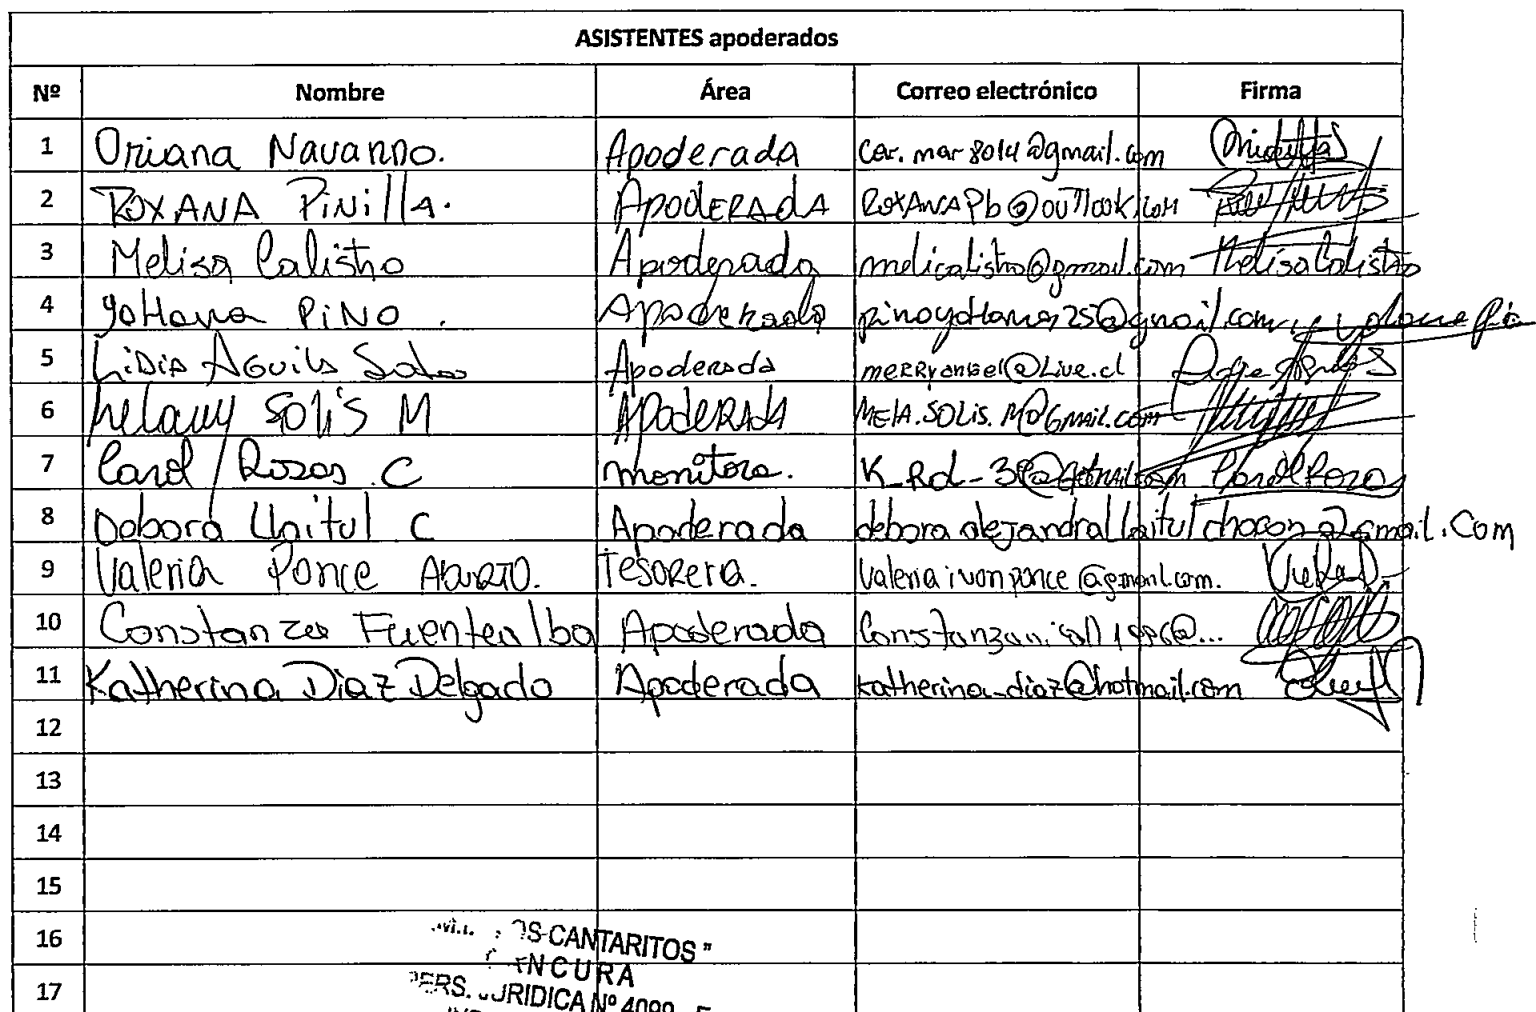 ASISTENTES apoderados
Nº Nombre Área Correo electrónico Firma
1 Oriana Navarro. Apoderada car.mar8014@gmail.com
2 ROXANA PiNilla. Apoderada ROXANAPb@ouTlook.com
3 Melisa Calisto Apoderada melicalisto@gmail.com Melisa Calisto
4 Yohana PiNO. Apoderada pinoyohana25@gmail.com
5 LiDiA AGuilA Apoderada merryangel@Live.cl
6 Melany SOLiS M APodERADA MElA.SOLIS.M@GMAIL.com
7 Carol Rozas C monitora. Carol Rozas
8 Debora Llaitul C Apoderada deboraalejandrallaitulchacon@gmail.Com
9 Valeria Ponce Tesorera. Valeriaivonponce@gmail.com.
10 Constanza Fuentealba Apoderada
11 Katherina Diaz Delgado Apoderada katherina_diaz@hotmail.com
12
13
14
15
16
CANTARITOS"
17
JURIDICA Nº